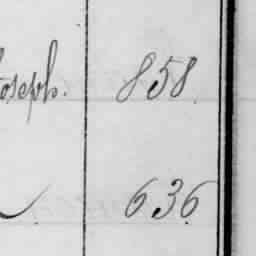 Joseph. 858.
636